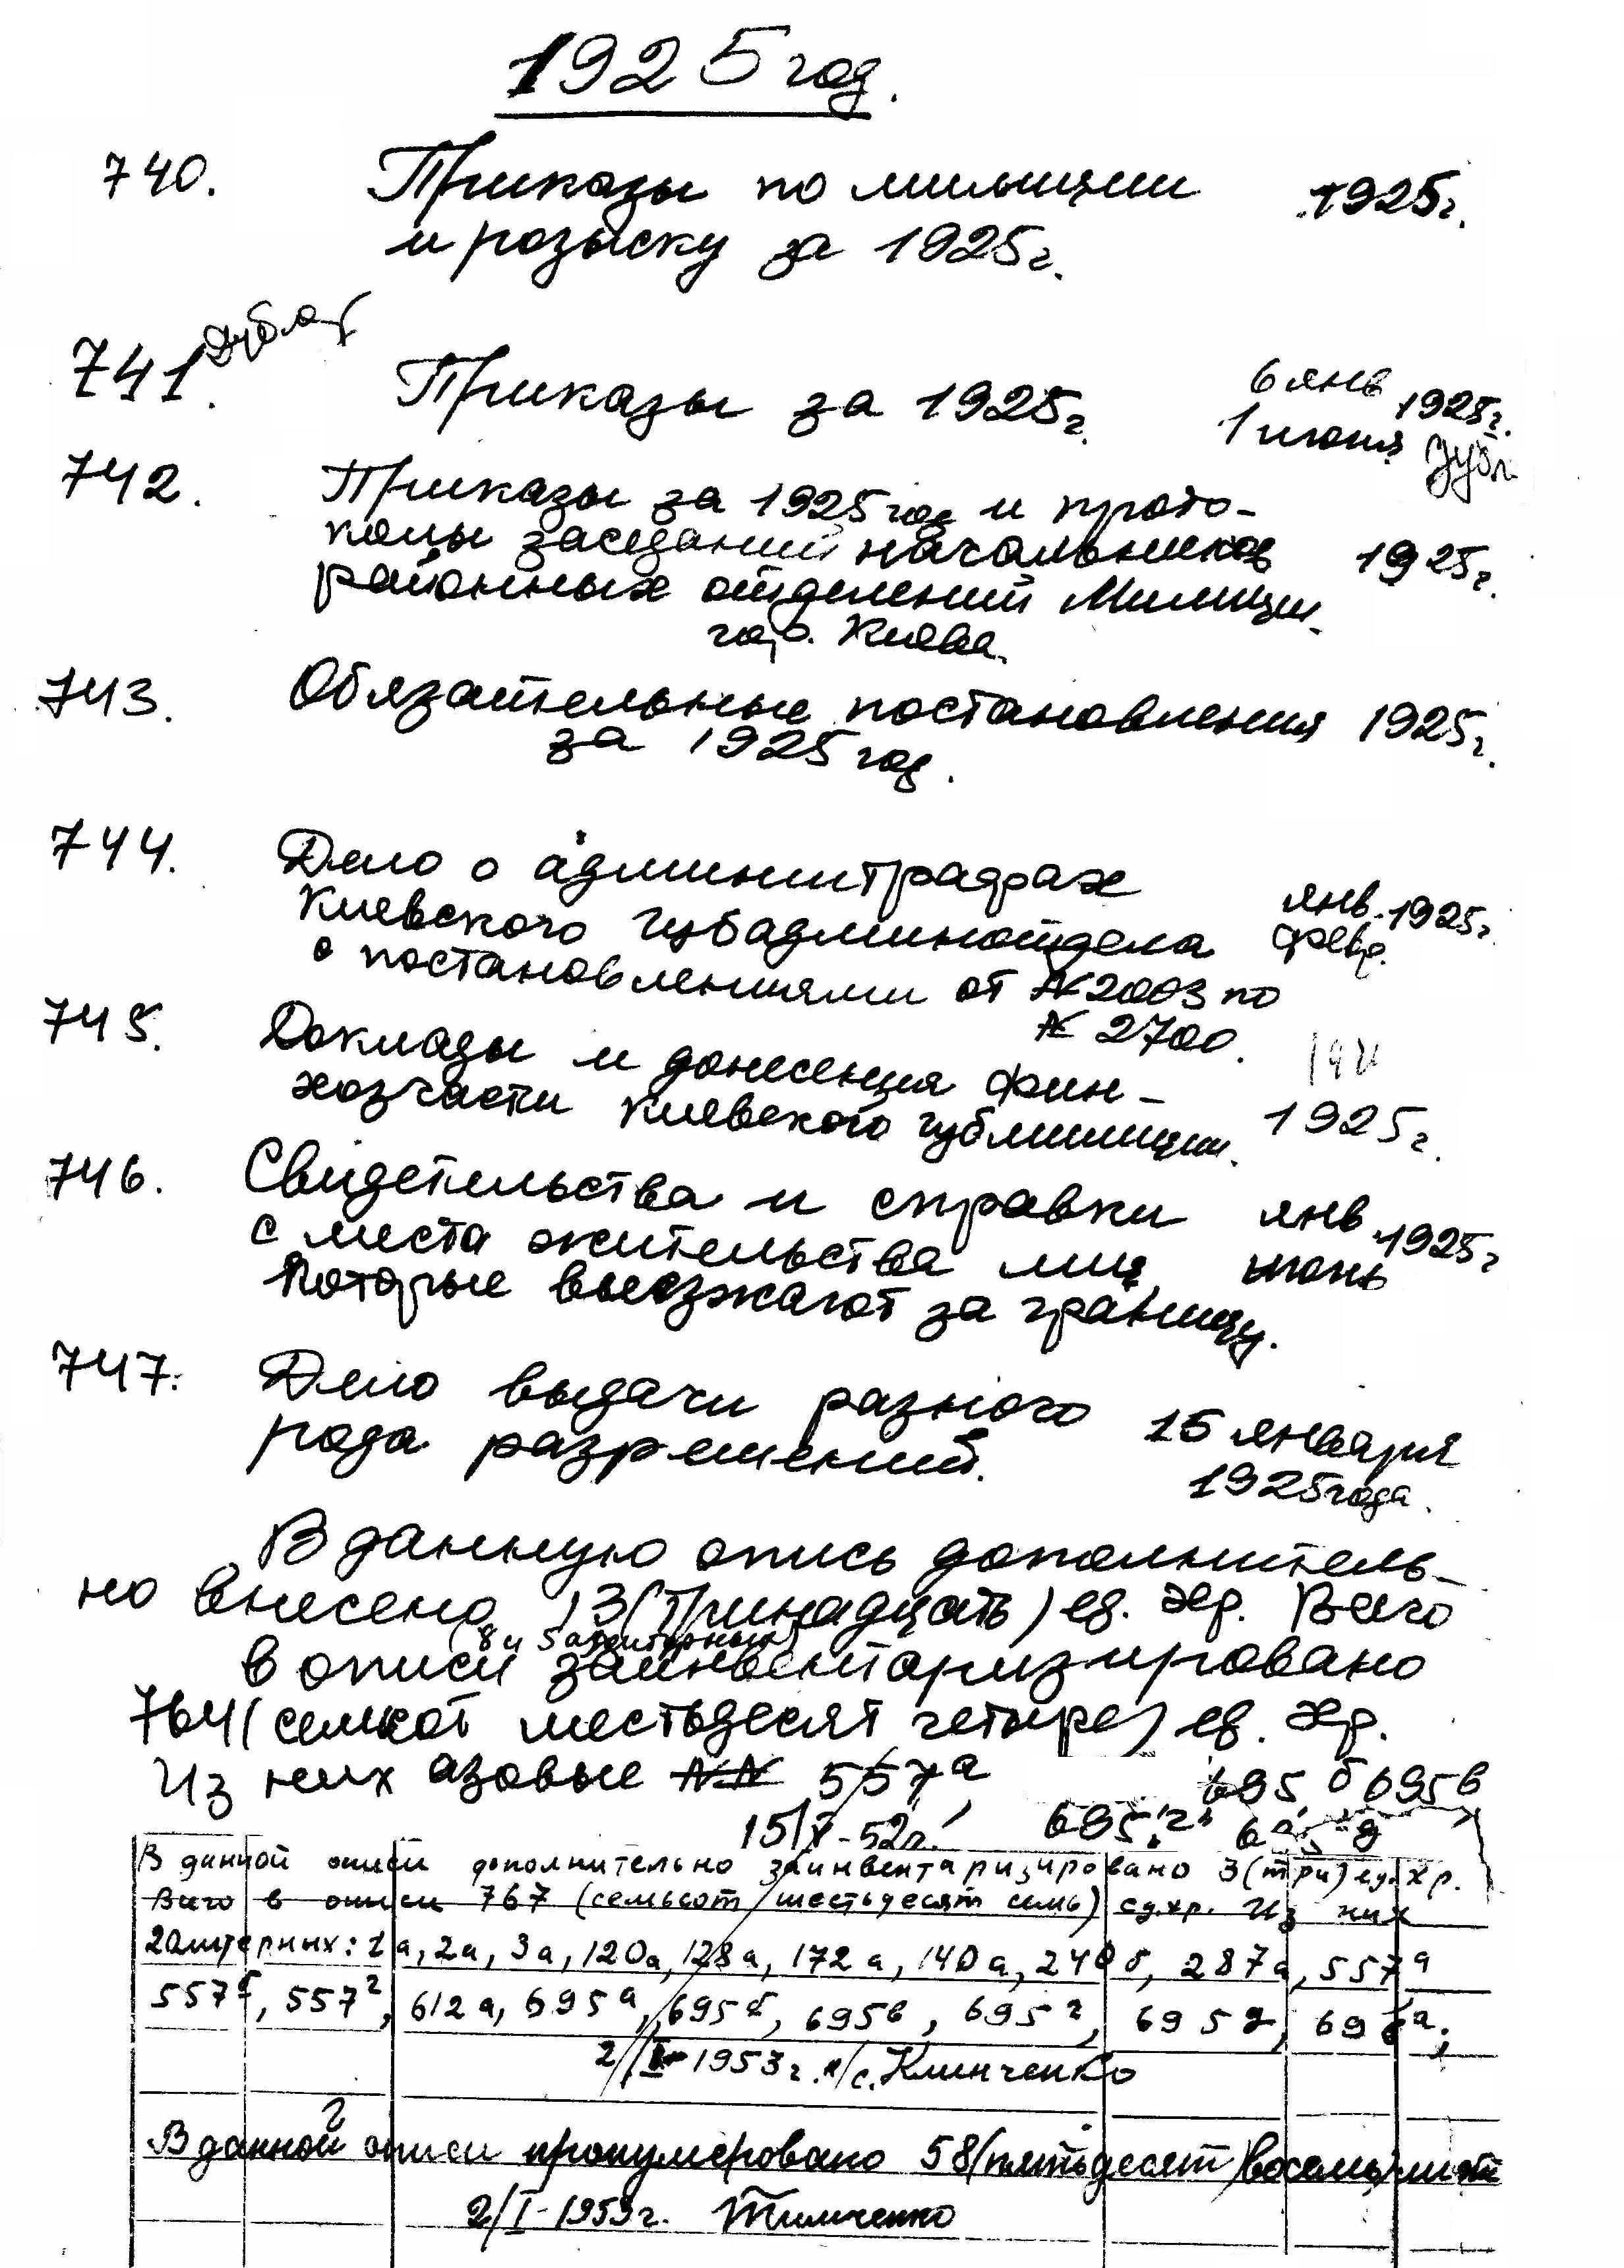 1925 год.
740. Приказы по милиции 1925г.
и розыску за 1925г.
741. Дублат
Приказы за 1925г. 6 янв 1925г.
1 июня дубл
742. Приказы за 1925 год и прото-
колы заседаний начальников 1925г.
районных отделений Милиции
гор. Киева.
743. Обязательные постановления 1925г.
за 1925 год.
744. Дело о админштрафах янв. 1925г.
Киевского Губадминотдела февр.
с постановлениями от № 2003 по
№ 2700.
745. Доклады и донесения фин-
хозчасти Киевского губмилиции. 1925г.
746. Свидетельства и справки янв 1925г
с места жительства лиц, июнь
которые выезжают за границу.
747. Дело выдачи разного 15 января
рода разрешений. 1925 года.
В данную опись дополнитель-
но внесено 13 (тринадцать) ед. хр. Всего
(8 и 5 алитерных)
в описи заинвентаризировано
764 (семьсот шестьдесят четыре) ед. хр.
Из них азовые №№ 557а, 695 б 695в
15/X-52г. 695 "г" 695 д
В данной описи дополнительно заинвентаризировано 3 (три) ед. хр.
Всего в описи 767 (семьсот шестьдесят семь) ед.хр. Из них
литерных: 1а, 2а, 3а, 120а, 128а, 172а, 140а, 240б, 287а, 557а
557б, 557г, 612а, 695а, 695б, 695в, 695г, 695д, 696а;
2/I-1953г. н/с. Клинченко
В данной описи пронумеровано 58 (пятьдесят восемь) листов
2/I-1953г. Тимченко